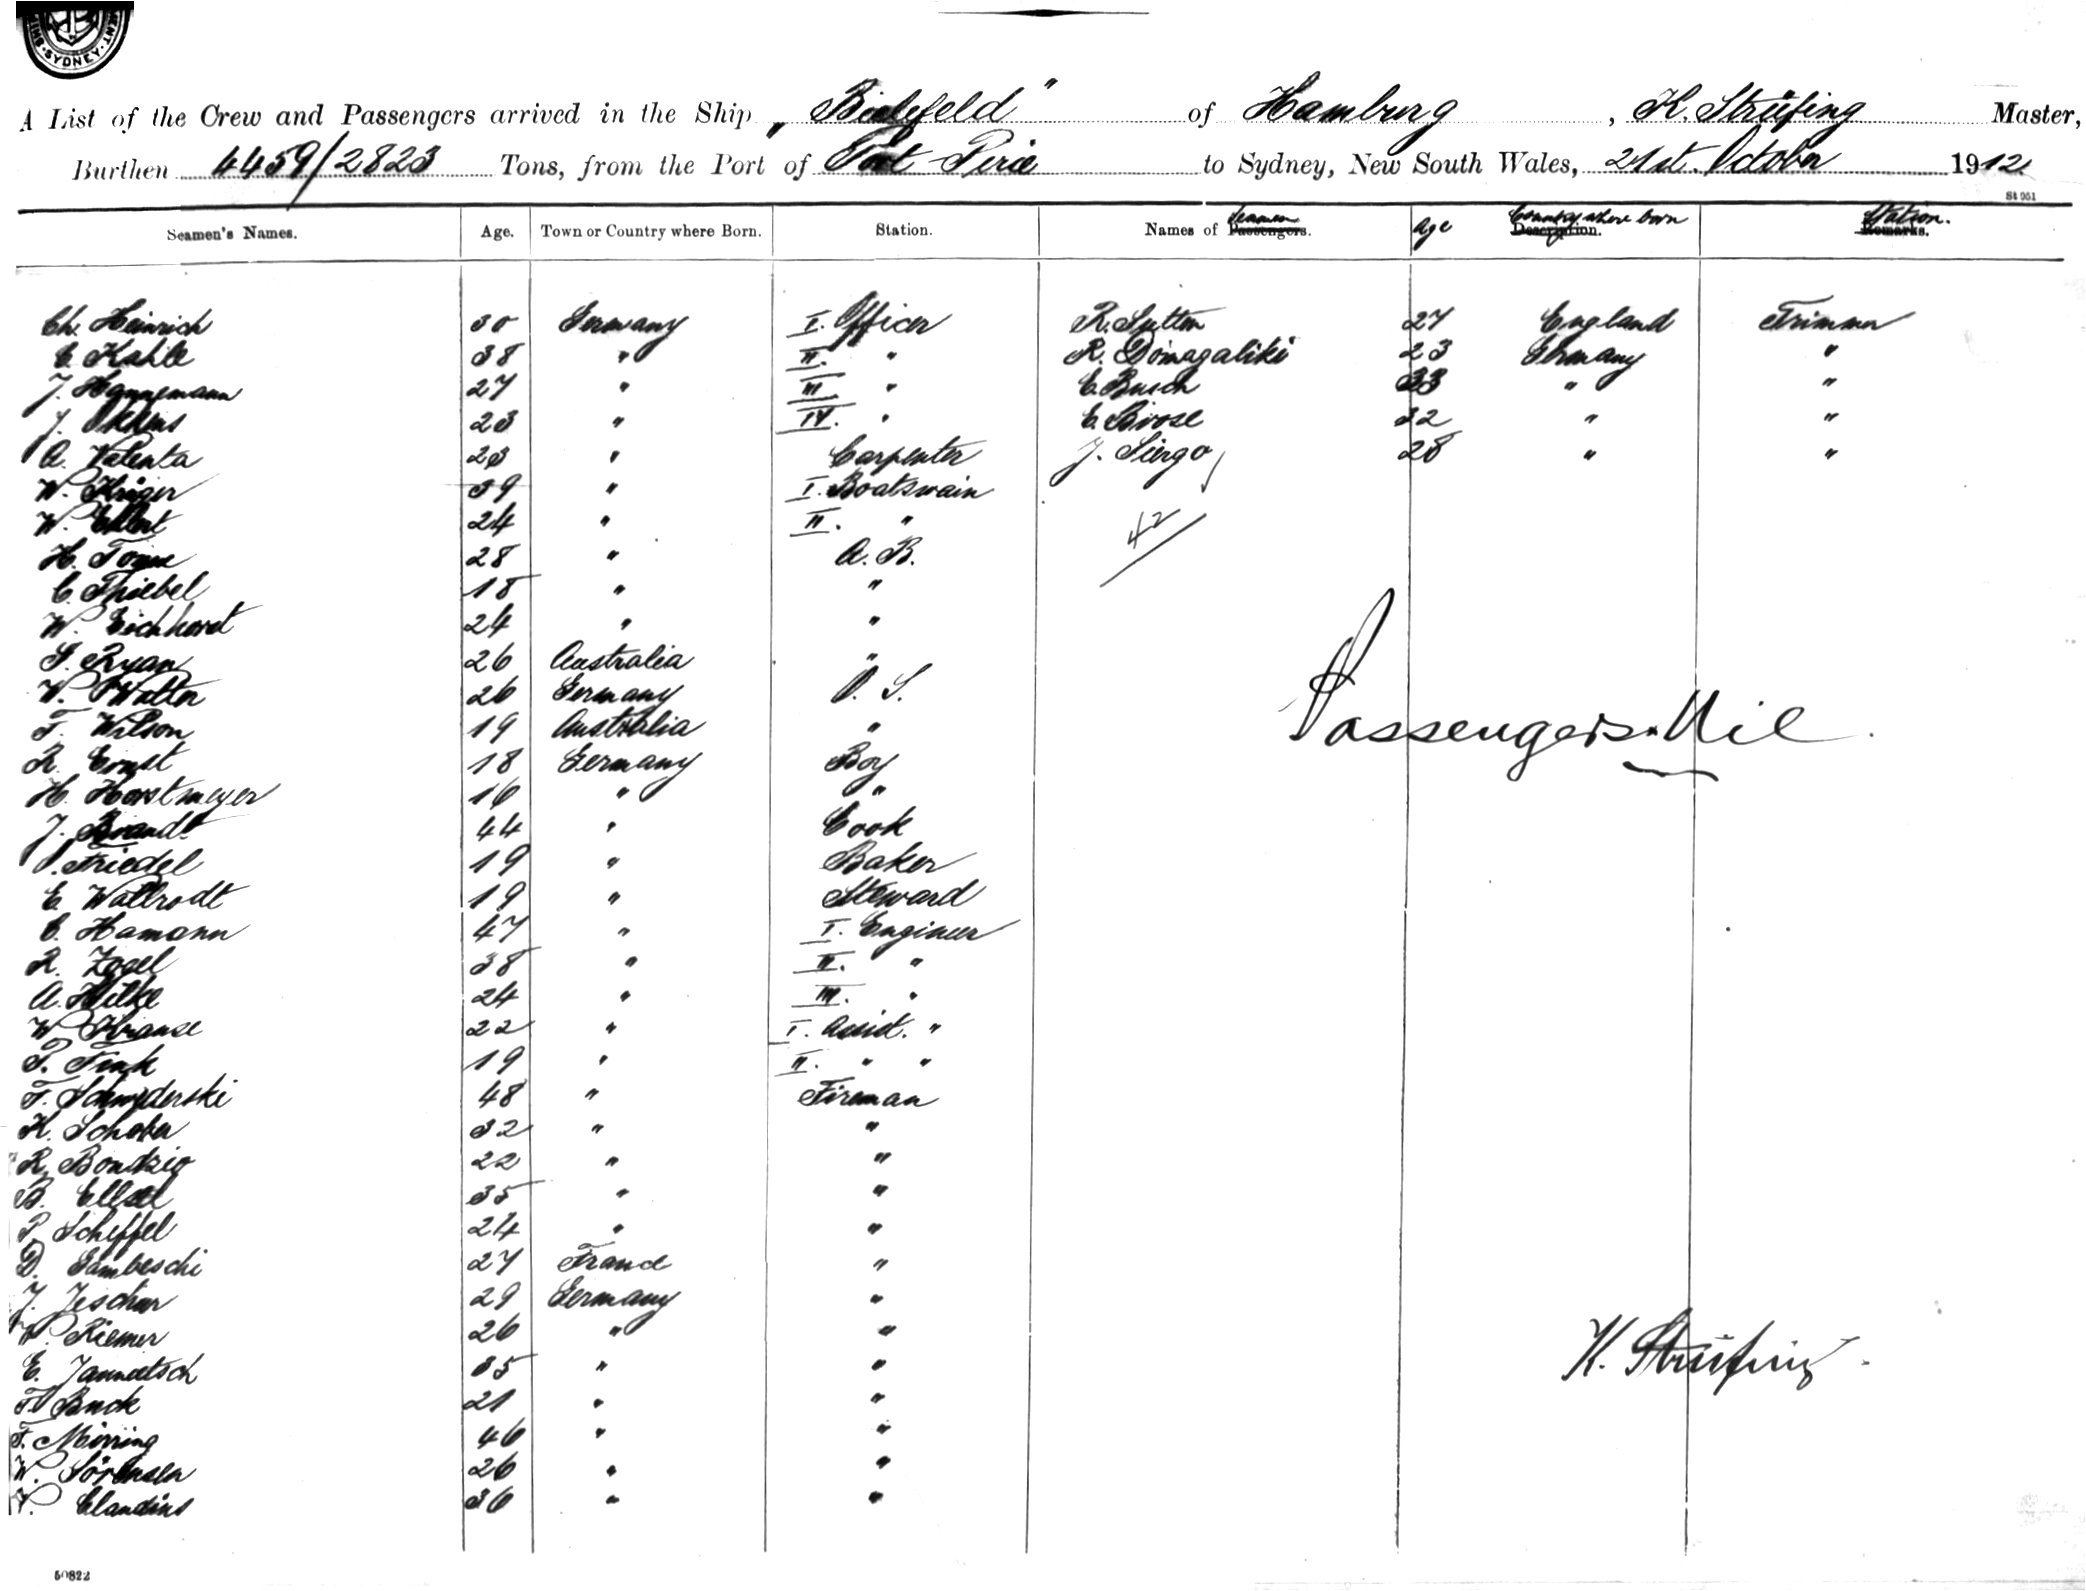 SYDNEY
A List of the Crew and Passengers arrived in the Ship „Bielefeld" of Hamburg, K. Strüfing Master,
Burthen 4459/2823 Tons, from the Port of Port Pirie to Sydney, New South Wales, 21st. October 1912
St 951
Seamen's Names. Age. Town or Country where Born. Station. Names of Passengers. Seamen Age Description. Country where born Remarks. Station.
Ch. Heinrich 30 Germany I. Officer R. Sutton 27 England Trimmer
C. Kahle 38 " II. " R. Domagaliki 23 Germany "
J. Hannemann 27 " III " E. Busch 33 " "
J. 23 " IV. " E. Boose 32 " "
A. Valenta 23 " Carpenter J. Siergo 28 " "
W. Krüger 39 " I. Boatswain
W. 24 " II. " 42
H. 28 " A. B.
C. Thiebel 18 " "
W. Eichhorst 24 " "
S. Ryan 26 Australia "
W. Walter 26 Germany O. S.
F. Wilson 19 Australia "
Passengers Nil
R. Ernst 18 Germany Boy
H. Horstmeyer 16 " "
J. Brandt 44 " Cook
O. Friedel 19 " Baker
E. Wallrodt 19 " Steward
C. Hamann 47 " I. Engineer
R. Zogel 38 " II. "
A. Hilke 24 " III. "
W. Krause 22 " I. Assist. "
P. Fink 19 " II. " "
F. 48 " Fireman
K. Schober 32 " "
R. Bondzio 22 " "
B. Ellsel 35 " "
P. Scheffel 24 " "
D. Gambeschi 27 France "
J. Jeschar 29 Germany "
W. Riemer 26 " "
K. Strüfing
E. Jannetsch 35 " "
F. Buck 21 " "
F. Mörring 46 " "
W. Sörensen 26 " "
Claudius 36 " "
50822